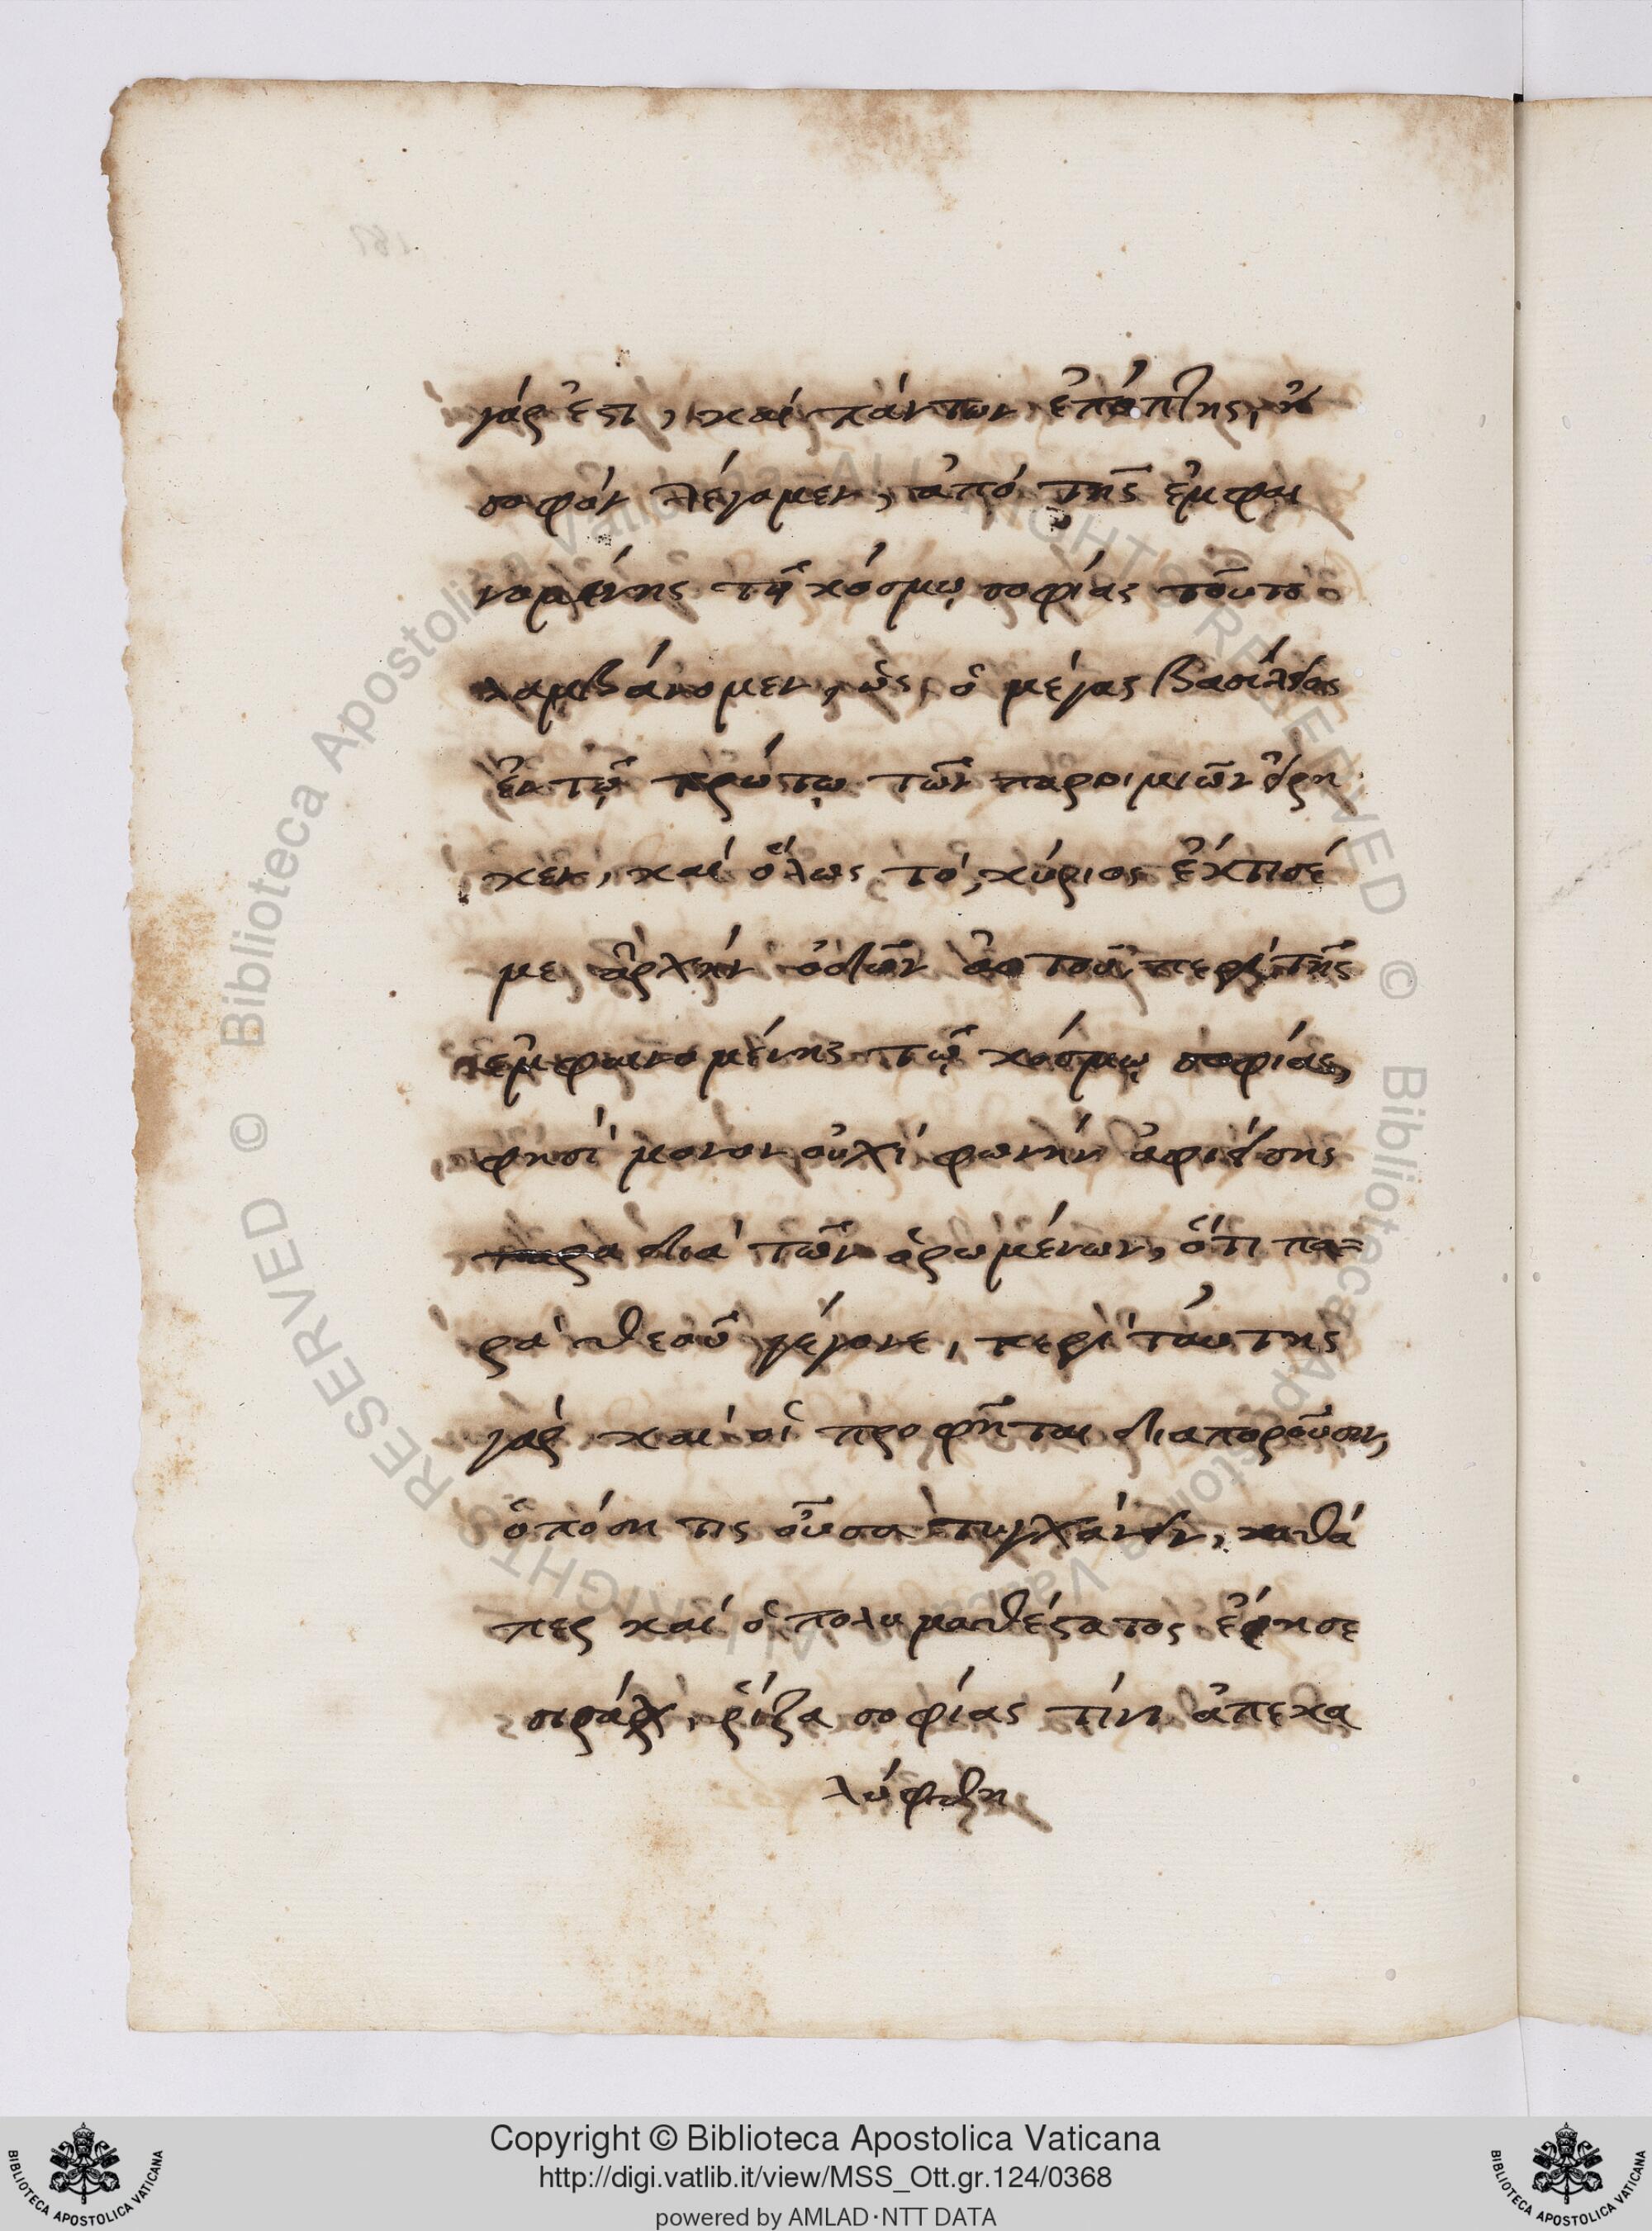 γάρ ἐστι, καὶ πάντων ἐπόπτης, κ
σοφὸν λέγομεν, ἀπὸ τῆς ἐμφαι
νομένης τῷ κόσμῳ σοφίας τοῦτο
λαμβάνομεν, ὡς ὁ μέγας βασίλειος
ἐν τῷ πρώτῳ τῶν παροιμιῶν εἴρη
κεν, καὶ ὅλως τό, κύριος ἔκτισέ
με ἀρχὴν ὁδῶν αὐτοῦ, περὶ τῆς
ἐμφαινομένης τῷ κόσμῳ σοφίας,
φησὶ μονονουχὶ φωνὴν ἀφιείσης
παρα διὰ τῶν ὁρωμένων, ὅτι πα=
ρὰ θεοῦ γέγονε, περὶ ταύτης
γὰρ καὶ οἱ προφῆται διαποροῦσιν,
ὁπόση τις οὖσα ἐτυγχάνειν, καθά
περ καὶ ὁ πολυμαθέστατος ἔφησε
σιράχ, ῥίζα σοφίας τίνι ἀπεκα
λύφθη
Copyright © Biblioteca Apostolica Vaticana
http://digi.vatlib.it/view/MSS_Ott.gr.124/0368
powered by AMLAD·NTT DATA
BIBLIOTECA APOSTOLICA VATICANA
BIBLIOTECA APOSTOLICA VATICANA